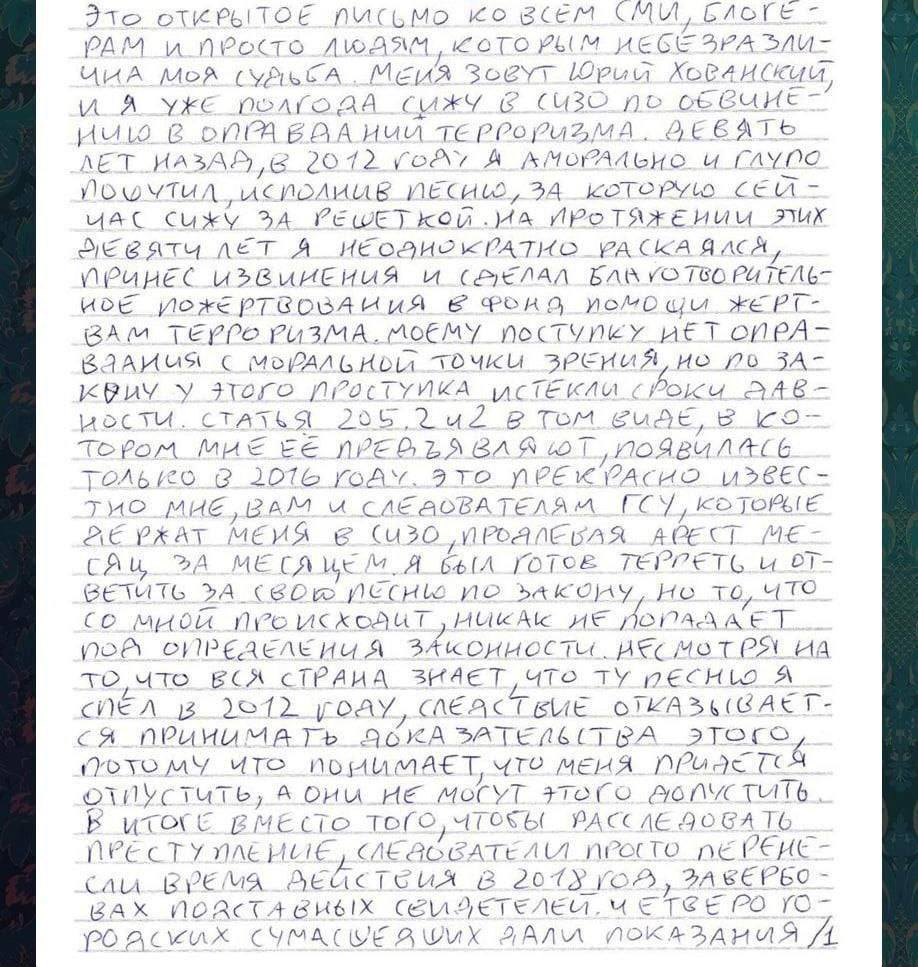 ЭТО ОТКРЫТОЕ ПИСЬМО КО ВСЕМ СМИ, БЛОГЕ-
РАМ И ПРОСТО ЛЮДЯМ, КОТОРЫМ НЕБЕЗРАЗЛИ-
ЧНА МОЯ СУДЬБА. МЕНЯ ЗОВУТ ЮРИЙ ХОВАНСКИЙ,
И Я УЖЕ ПОЛГОДА СИЖУ В СИЗО ПО ОБВИНЕ-
НИЮ В ОПРАВДАНИЙ ТЕРРОРИЗМА. ДЕВЯТЬ
ЛЕТ НАЗАД, В 2012 ГОДУ Я АМОРАЛЬНО И ГЛУПО
ПОШУТИЛ, ИСПОЛНИВ ПЕСНЮ, ЗА КОТОРУЮ СЕЙ-
ЧАС СИЖУ ЗА РЕШЕТКОЙ. НА ПРОТЯЖЕНИИ ЭТИХ
ДЕВЯТИ ЛЕТ Я НЕОДНОКРАТНО РАСКАЯЛСЯ,
ПРИНЕС ИЗВИНЕНИЯ И СДЕЛАЛ БЛАГОТВОРИТЕЛЬ-
НОЕ ПОЖЕРТВОВАНИЯ В ФОНД ПОМОЩИ ЖЕРТ-
ВАМ ТЕРРОРИЗМА. МОЕМУ ПОСТУПКУ НЕТ ОПРА-
ВДАНИЯ С МОРАЛЬНОЙ ТОЧКИ ЗРЕНИЯ, НО ПО ЗА-
КОНУ У ЭТОГО ПРОСТУПКА ИСТЕКЛИ СРОКИ ДАВ-
НОСТИ. СТАТЬЯ 205.2 Ч2 В ТОМ ВИДЕ, В КО-
ТОРОМ МНЕ ЕЁ ПРЕДЪЯВЛЯЮТ, ПОЯВИЛАСЬ
ТОЛЬКО В 2016 ГОДУ. ЭТО ПРЕКРАСНО ИЗВЕС-
ТНО МНЕ, ВАМ И СЛЕДОВАТЕЛЯМ ГСУ, КОТОРЫЕ
ДЕРЖАТ МЕНЯ В СИЗО, ПРОДЛЕВАЯ АРЕСТ МЕ-
СЯЦ ЗА МЕСЯЦЕМ. Я БЫЛ ГОТОВ ТЕРПЕТЬ И ОТ-
ВЕТИТЬ ЗА СВОЮ ПЕСНЮ ПО ЗАКОНУ, НО ТО, ЧТО
СО МНОЙ ПРОИСХОДИТ, НИКАК НЕ ПОПАДАЕТ
ПОД ОПРЕДЕЛЕНИЯ ЗАКОННОСТИ. НЕСМОТРЯ НА
ТО, ЧТО ВСЯ СТРАНА ЗНАЕТ, ЧТО ТУ ПЕСНЮ Я
СПЕЛ В 2012 ГОДУ, СЛЕДСТВИЕ ОТКАЗЫВАЕТ-
СЯ ПРИНИМАТЬ ДОКАЗАТЕЛЬСТВА ЭТОГО,
ПОТОМУ ЧТО ПОНИМАЕТ, ЧТО МЕНЯ ПРИДЕТСЯ
ОТПУСТИТЬ, А ОНИ НЕ МОГУТ ЭТОГО ДОПУСТИТЬ.
В ИТОГЕ ВМЕСТО ТОГО, ЧТОБЫ РАССЛЕДОВАТЬ
ПРЕСТУПЛЕНИЕ, СЛЕДОВАТЕЛИ ПРОСТО ПЕРЕНЕ-
СЛИ ВРЕМЯ ДЕЙСТВИЯ В 2018 ГОД, ЗАВЕРБО-
ВАХ ПОДСТАВНЫХ СВИДЕТЕЛЕЙ. ЧЕТВЕРО ГО-
РОДСКИХ СУМАСШЕДШИХ ДАЛИ ПОКАЗАНИЯ /1